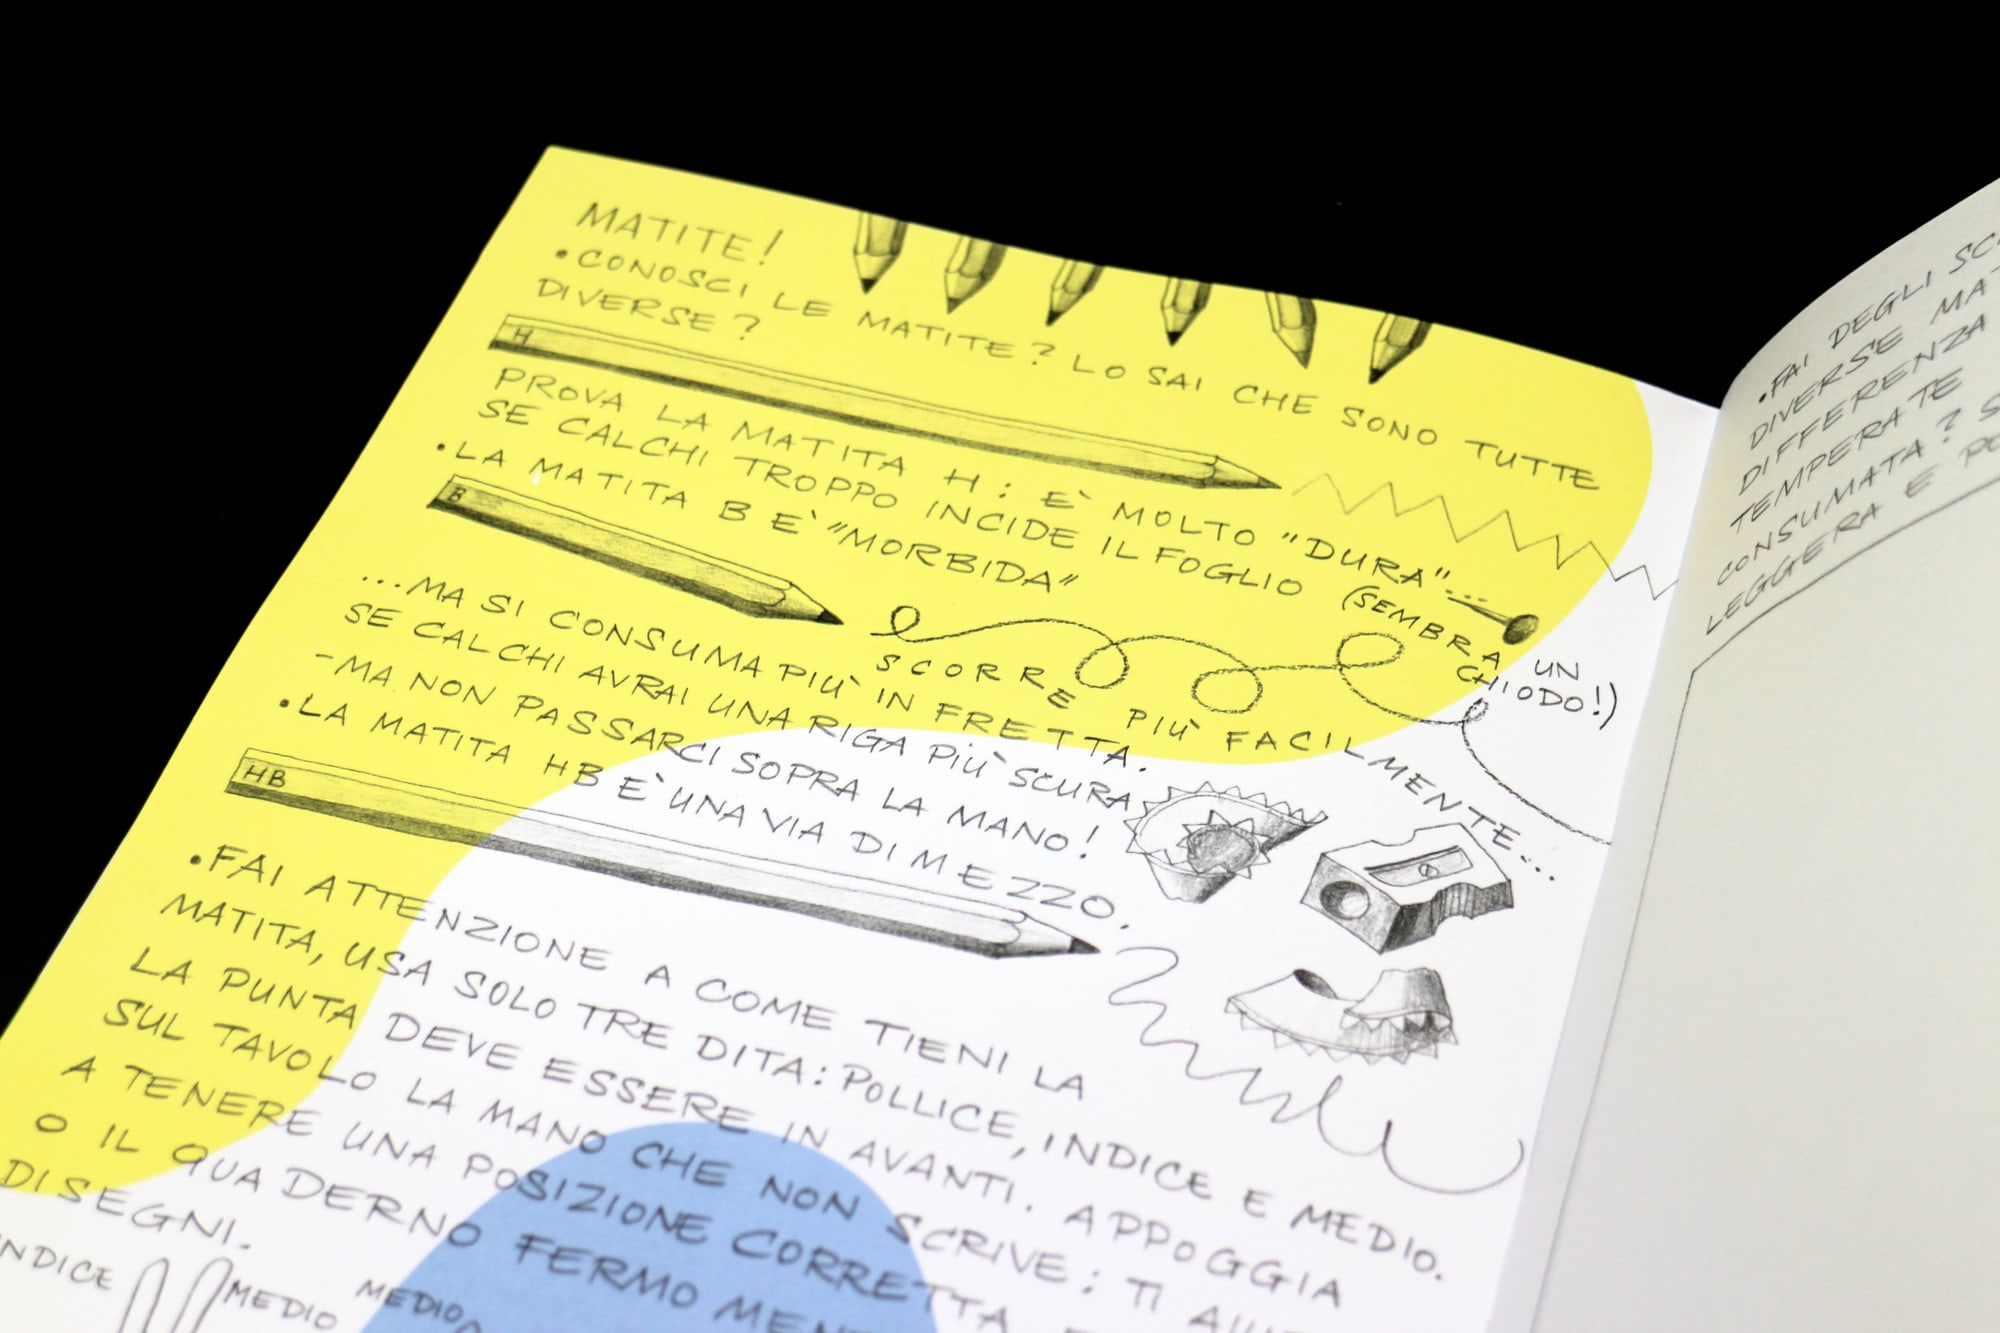 MATITE!
•CONOSCI LE MATITE? LO SAI CHE SONO TUTTE
DIVERSE?
H
PROVA LA MATITA H: E' MOLTO "DURA"...
SE CALCHI TROPPO INCIDE IL FOGLIO (SEMBRA UN
CHIODO!)
•LA MATITA B E' "MORBIDA"
B
SCORRE PIU' FACILMENTE...
...MA SI CONSUMA PIU' IN FRETTA.
SE CALCHI AVRAI UNA RIGA PIU' SCURA
-MA NON PASSARCI SOPRA LA MANO!
•LA MATITA HB E' UNA VIA DI MEZZO.
HB
•FAI ATTENZIONE A COME TIENI LA
MATITA, USA SOLO TRE DITA: POLLICE, INDICE E MEDIO.
LA PUNTA DEVE ESSERE IN AVANTI. APPOGGIA
SUL TAVOLO LA MANO CHE NON SCRIVE: TI
A TENERE UNA POSIZIONE CORRETTA
O IL QUADERNO FERMO
DISEGNI.
INDICE
MEDIO
MEDIO
•FAI DEGLI
DIVERSE
DIFFERENZA
TEMPERATE
CONSUMATA?
LEGGERA E